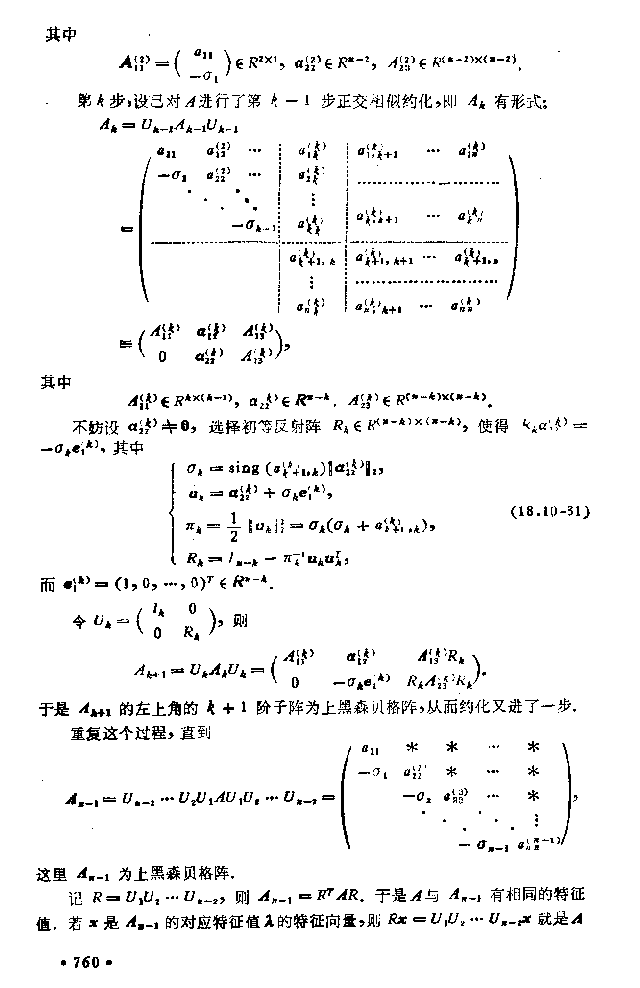 其中
A₁₁⁽²⁾ = ( a₁₁ ; −σ₁ ) ∈ R²ˣ¹, α₂₂⁽²⁾ ∈ Rⁿ⁻², A₂₃⁽²⁾ ∈ R⁽ⁿ⁻²⁾ˣ⁽ⁿ⁻²⁾,
第 k 步,设已对 A 进行了第 k − 1 步正交相似约化,即 Aₖ 有形式:
Aₖ = Uₖ₋₁Aₖ₋₁Uₖ₋₁
a₁₁ a₁₂⁽²⁾ ⋯ a₁ₖ⁽ᵏ⁾ a₁,ₖ₊₁⁽ᵏ⁾ ⋯ a₁ₙ⁽ᵏ⁾
−σ₁ a₂₂⁽²⁾ ⋯ a₂ₖ⁽ᵏ⁾ ⋯⋯⋯
⋱ ⋱ ⋮
= −σₖ₋₁ aₖₖ⁽ᵏ⁾ aₖ,ₖ₊₁⁽ᵏ⁾ ⋯ aₖₙ⁽ᵏ⁾
aₖ₊₁,ₖ⁽ᵏ⁾ aₖ₊₁,ₖ₊₁⁽ᵏ⁾ ⋯ aₖ₊₁,ₙ⁽ᵏ⁾
⋮ ⋯⋯⋯
aₙₖ⁽ᵏ⁾ aₙ,ₖ₊₁⁽ᵏ⁾ ⋯ aₙₙ⁽ᵏ⁾
≡ ( A₁₁⁽ᵏ⁾ α₁₂⁽ᵏ⁾ A₁₃⁽ᵏ⁾ ; 0 α₂₂⁽ᵏ⁾ A₂₃⁽ᵏ⁾ ),
其中
A₁₁⁽ᵏ⁾ ∈ Rᵏˣ⁽ᵏ⁻¹⁾, α₂₂⁽ᵏ⁾ ∈ Rⁿ⁻ᵏ, A₂₃⁽ᵏ⁾ ∈ R⁽ⁿ⁻ᵏ⁾ˣ⁽ⁿ⁻ᵏ⁾.
不妨设 α₂₂⁽ᵏ⁾ ≠ 0, 选择初等反射阵 Rₖ ∈ R⁽ⁿ⁻ᵏ⁾ˣ⁽ⁿ⁻ᵏ⁾, 使得 Rₖα₂₂⁽ᵏ⁾ =
−σₖe₁⁽ᵏ⁾, 其中
σₖ = sing (aₖ₊₁,ₖ⁽ᵏ⁾)‖α₂₂⁽ᵏ⁾‖₂,
uₖ = α₂₂⁽ᵏ⁾ + σₖe₁⁽ᵏ⁾,
πₖ = 1/2 ‖uₖ‖₂² = σₖ(σₖ + aₖ₊₁,ₖ⁽ᵏ⁾), (18.10-31)
Rₖ = Iₙ₋ₖ − πₖ⁻¹uₖuₖᵀ,
而 e₁⁽ᵏ⁾ = (1, 0, ⋯, 0)ᵀ ∈ Rⁿ⁻ᵏ.
令 Uₖ = ( Iₖ 0 ; 0 Rₖ ), 则
Aₖ₊₁ = UₖAₖUₖ = ( A₁₁⁽ᵏ⁾ α₁₂⁽ᵏ⁾ A₁₃⁽ᵏ⁾Rₖ ; 0 −σₖe₁⁽ᵏ⁾ RₖA₂₃⁽ᵏ⁾Rₖ ).
于是 Aₖ₊₁ 的左上角的 k + 1 阶子阵为上黑森贝格阵,从而约化又进了一步.
重复这个过程, 直到
a₁₁ * * ⋯ *
−σ₁ a₂₂⁽²⁾ * ⋯ *
Aₙ₋₁ = Uₙ₋₂ ⋯ U₂U₁AU₁U₂ ⋯ Uₙ₋₂ = −σ₂ a₃₃⁽³⁾ ⋯ * ,
⋱ ⋱ ⋮
−σₙ₋₁ aₙₙ⁽ⁿ⁻¹⁾
这里 Aₙ₋₁ 为上黑森贝格阵.
记 R = U₁U₂ ⋯ Uₙ₋₂, 则 Aₙ₋₁ = RᵀAR. 于是 A 与 Aₙ₋₁ 有相同的特征
值. 若 x 是 Aₙ₋₁ 的对应特征值 λ 的特征向量,则 Rx = U₁U₂ ⋯ Uₙ₋₂x 就是 A
• 760 •